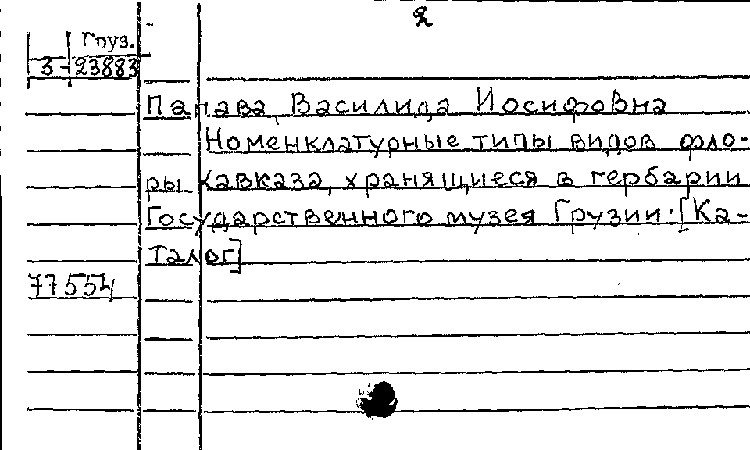 2
Груз.
3-23883
Папава Василида Иосифовна
Номенклатурные типы видов фло-
ры Кавказа, хранящиеся в гербарии
Государственного музея Грузии: [Ка-
талог]
77554